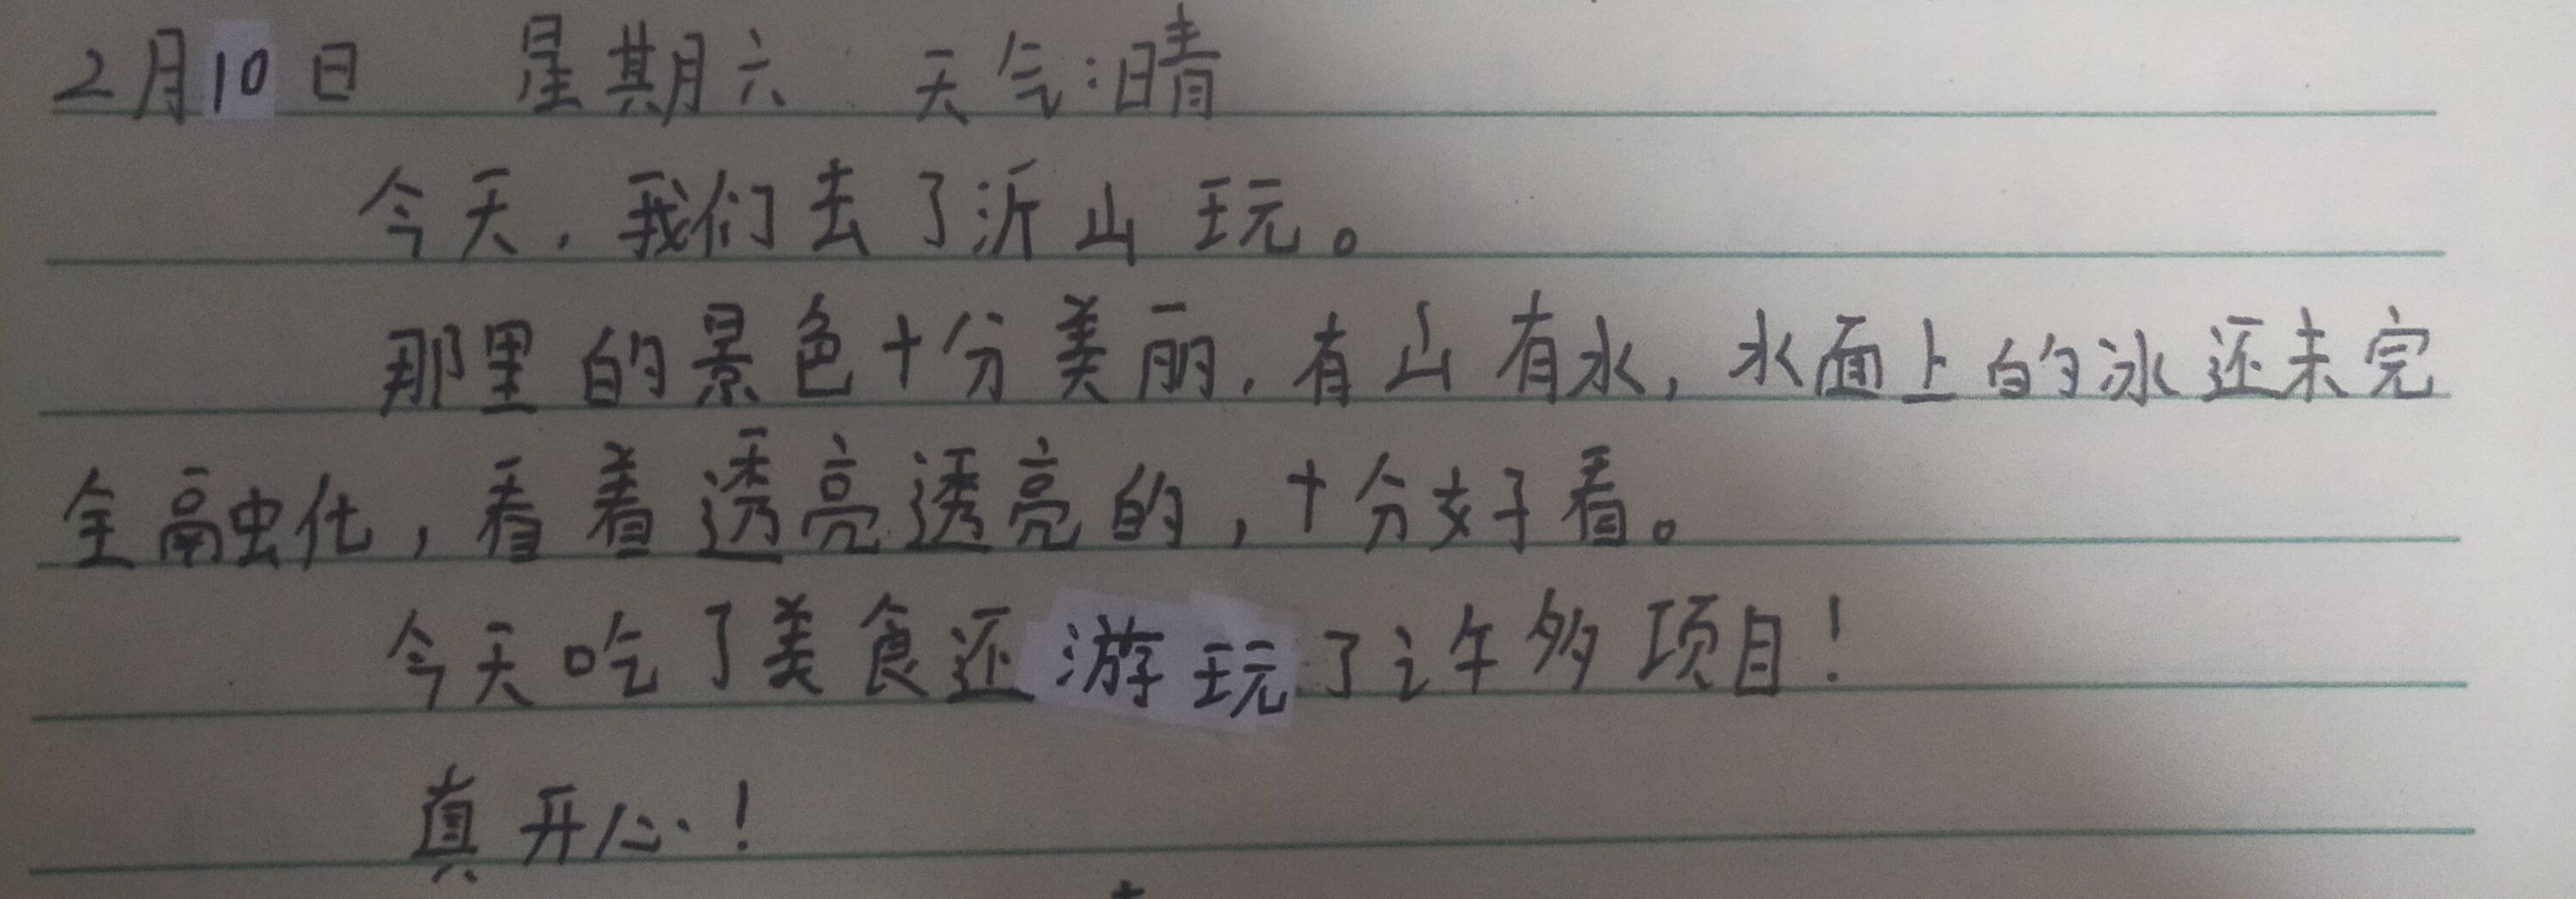 2月10日 星期六 天气:晴
今天，我们去了沂山玩。
那里的景色十分美丽，有山有水，水面上的冰还未完
全融化，看着透亮透亮的，十分好看。
今天吃了美食还游玩了许多项目！
真开心！